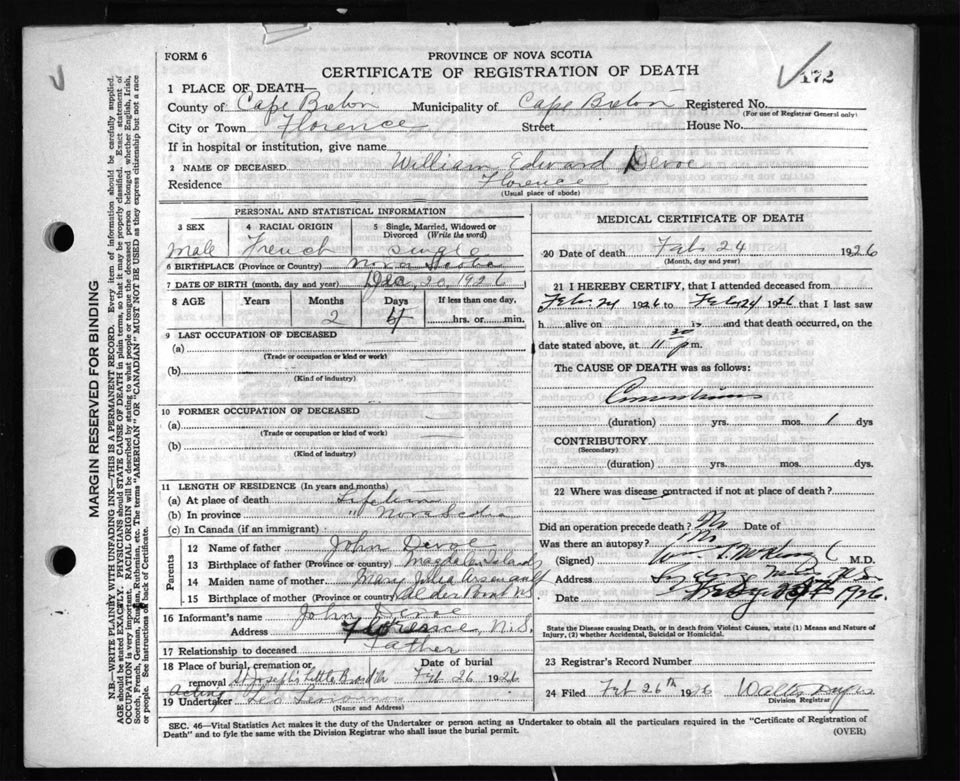 FORM 6
PROVINCE OF NOVA SCOTIA
CERTIFICATE OF REGISTRATION OF DEATH
172
1 PLACE OF DEATH—
County of Cape Breton Municipality of Cape Breton Registered No.
(For use of Registrar General only)
City or Town Florence Street House No.
If in hospital or institution, give name
2 NAME OF DECEASED William Edward Devoe
Residence Florence
(Usual place of abode)
PERSONAL AND STATISTICAL INFORMATION
3 SEX 4 RACIAL ORIGIN 5 Single, Married, Widowed or Divorced (Write the word)
Male French Single
6 BIRTHPLACE (Province or Country) Nova Scotia
7 DATE OF BIRTH (month, day and year) Dec, 20, 1926
8 AGE Years Months Days If less than one day,
2 4 hrs. or min.
9 LAST OCCUPATION OF DECEASED
(a)
(Trade or occupation or kind or work)
(b)
(Kind of industry)
10 FORMER OCCUPATION OF DECEASED
(a)
(Trade or occupation or kind of work)
(b)
(Kind of industry)
11 LENGTH OF RESIDENCE (In years and months)
(a) At place of death Lifetime
(b) In province " Nova Scotia
(c) In Canada (if an immigrant)
Parents
12 Name of father John Devoe
13 Birthplace of father (Province or country) Magdalen Islands
14 Maiden name of mother Mary Julia
15 Birthplace of mother (Province or country) N.S
16 Informant's name John Devoe
Address Florence, N.S.
17 Relationship to deceased Father
18 Place of burial, cremation or Date of burial
removal St Joseph's Little Bras d'Or Feb 26 1926
Acting
19 Undertaker Leo
(Name and Address)
MEDICAL CERTIFICATE OF DEATH
20 Date of death Feb 24 1926
(Month, day and year)
21 I HEREBY CERTIFY, that I attended deceased from
Feb. 24 1926 to Feb 24 1926 that I last saw
h alive on 19 and that death occurred, on the
date stated above, at 11 30 p m.
The CAUSE OF DEATH was as follows:
Convulsions
(duration) yrs. mos. 1 dys
CONTRIBUTORY
(Secondary)
(duration) yrs. mos. dys.
22 Where was disease contracted if not at place of death?
Did an operation precede death? No Date of
Was there an autopsy? No
(Signed) Wm. M.D.
Address Sydney Mines N.S.
Date 1926
State the Disease causing Death, or in death from Violent Causes, state (1) Means and Nature of
Injury, (2) whether Accidental, Suicidal or Homicidal.
23 Registrar's Record Number
24 Filed Feb 26th 1926 Walter
Division Registrar
SEC. 46—Vital Statistics Act makes it the duty of the Undertaker or person acting as Undertaker to obtain all the particulars required in the "Certificate of Registration of
Death" and to fyle the same with the Division Registrar who shall issue the burial permit.
(OVER)
MARGIN RESERVED FOR BINDING
N.B.—WRITE PLAINLY WITH UNFADING INK—THIS IS A PERMANENT RECORD. Every item of information should be carefully supplied.
AGE should be stated EXACTLY. PHYSICIANS should STATE CAUSE OF DEATH in plain terms, so that it may be properly classified. Exact statement of
OCCUPATION is very important. RACIAL ORIGIN will be described by stating to what people or tongue the deceased person belonged whether English, Irish,
Scotch, French, German, Russian, Ruthenian, etc. The terms "AMERICAN" OR "CANADIAN" MUST NOT BE USED as they express citizenship but not a race
or people. See instructions on back of Certificate.